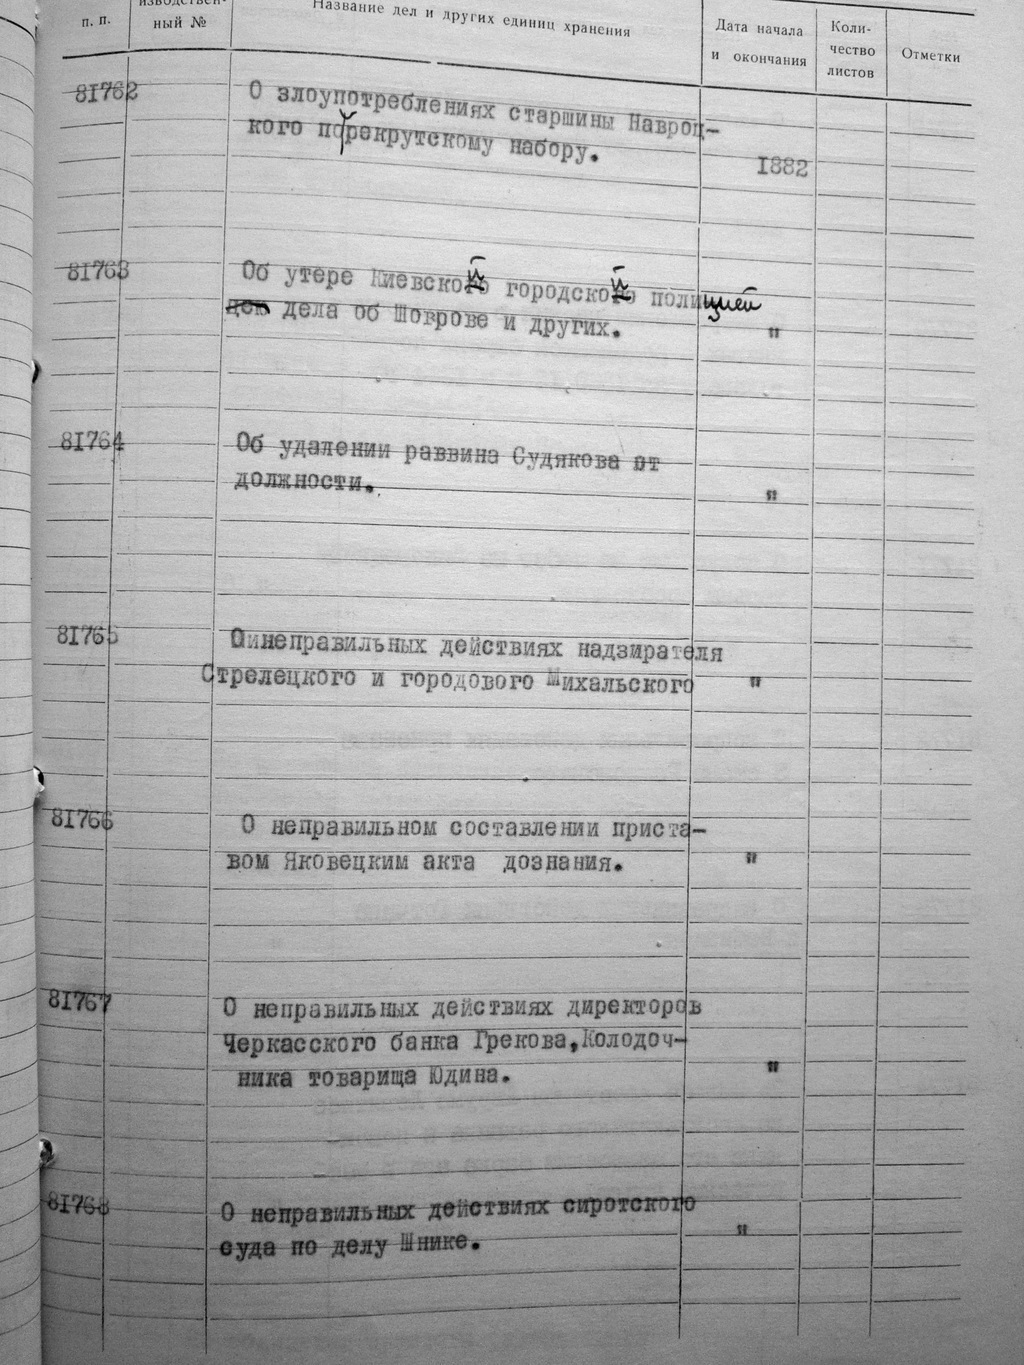 п. п.
изводствен-
ный №
Название дел и других единиц хранения
Дата начала
и окончания
Коли-
чество
листов
Отметки
81762
О злоупотреблениях старшины Навроц-
кого по рекрутскому набору.
1882
81763
Об утере Киевской городской полицией
дела об Шоврове и других.
"
81764
Об удалении раввина Судякова от
должности.
"
81765
О инеправильных действиях надзирателя
Стрелецкого и городового Михальского
"
81766
О неправильном составлении приста-
вом Яковецким акта дознания.
"
81767
О неправильных действиях директоров
Черкасского банка Грекова, Колодоч-
ника товарища Юдина.
"
81768
О неправильных действиях сиротского
суда по делу Шнике.
"